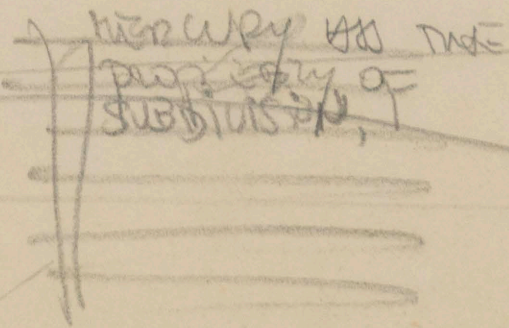 MERCURY HAS THE
PROPERTY OF
SUBDIVISION,